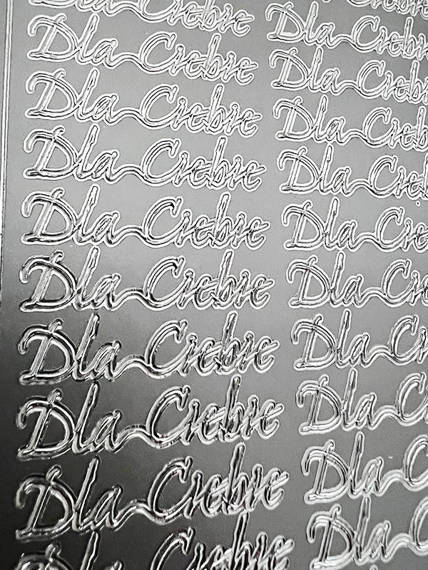 Dla Ciebie Dla Ciebie
Dla Ciebie Dla Ciebi
Dla Ciebie Dla Cieb
Dla Ciebie Dla Cieb
Dla Ciebie Dla Cie
Dla Ciebie Dla Cie
Dla Ciebie Dla Ci
Dla Ciebie Dla C
Dla Ciebie Dla C
Dla Ciebie Dla C